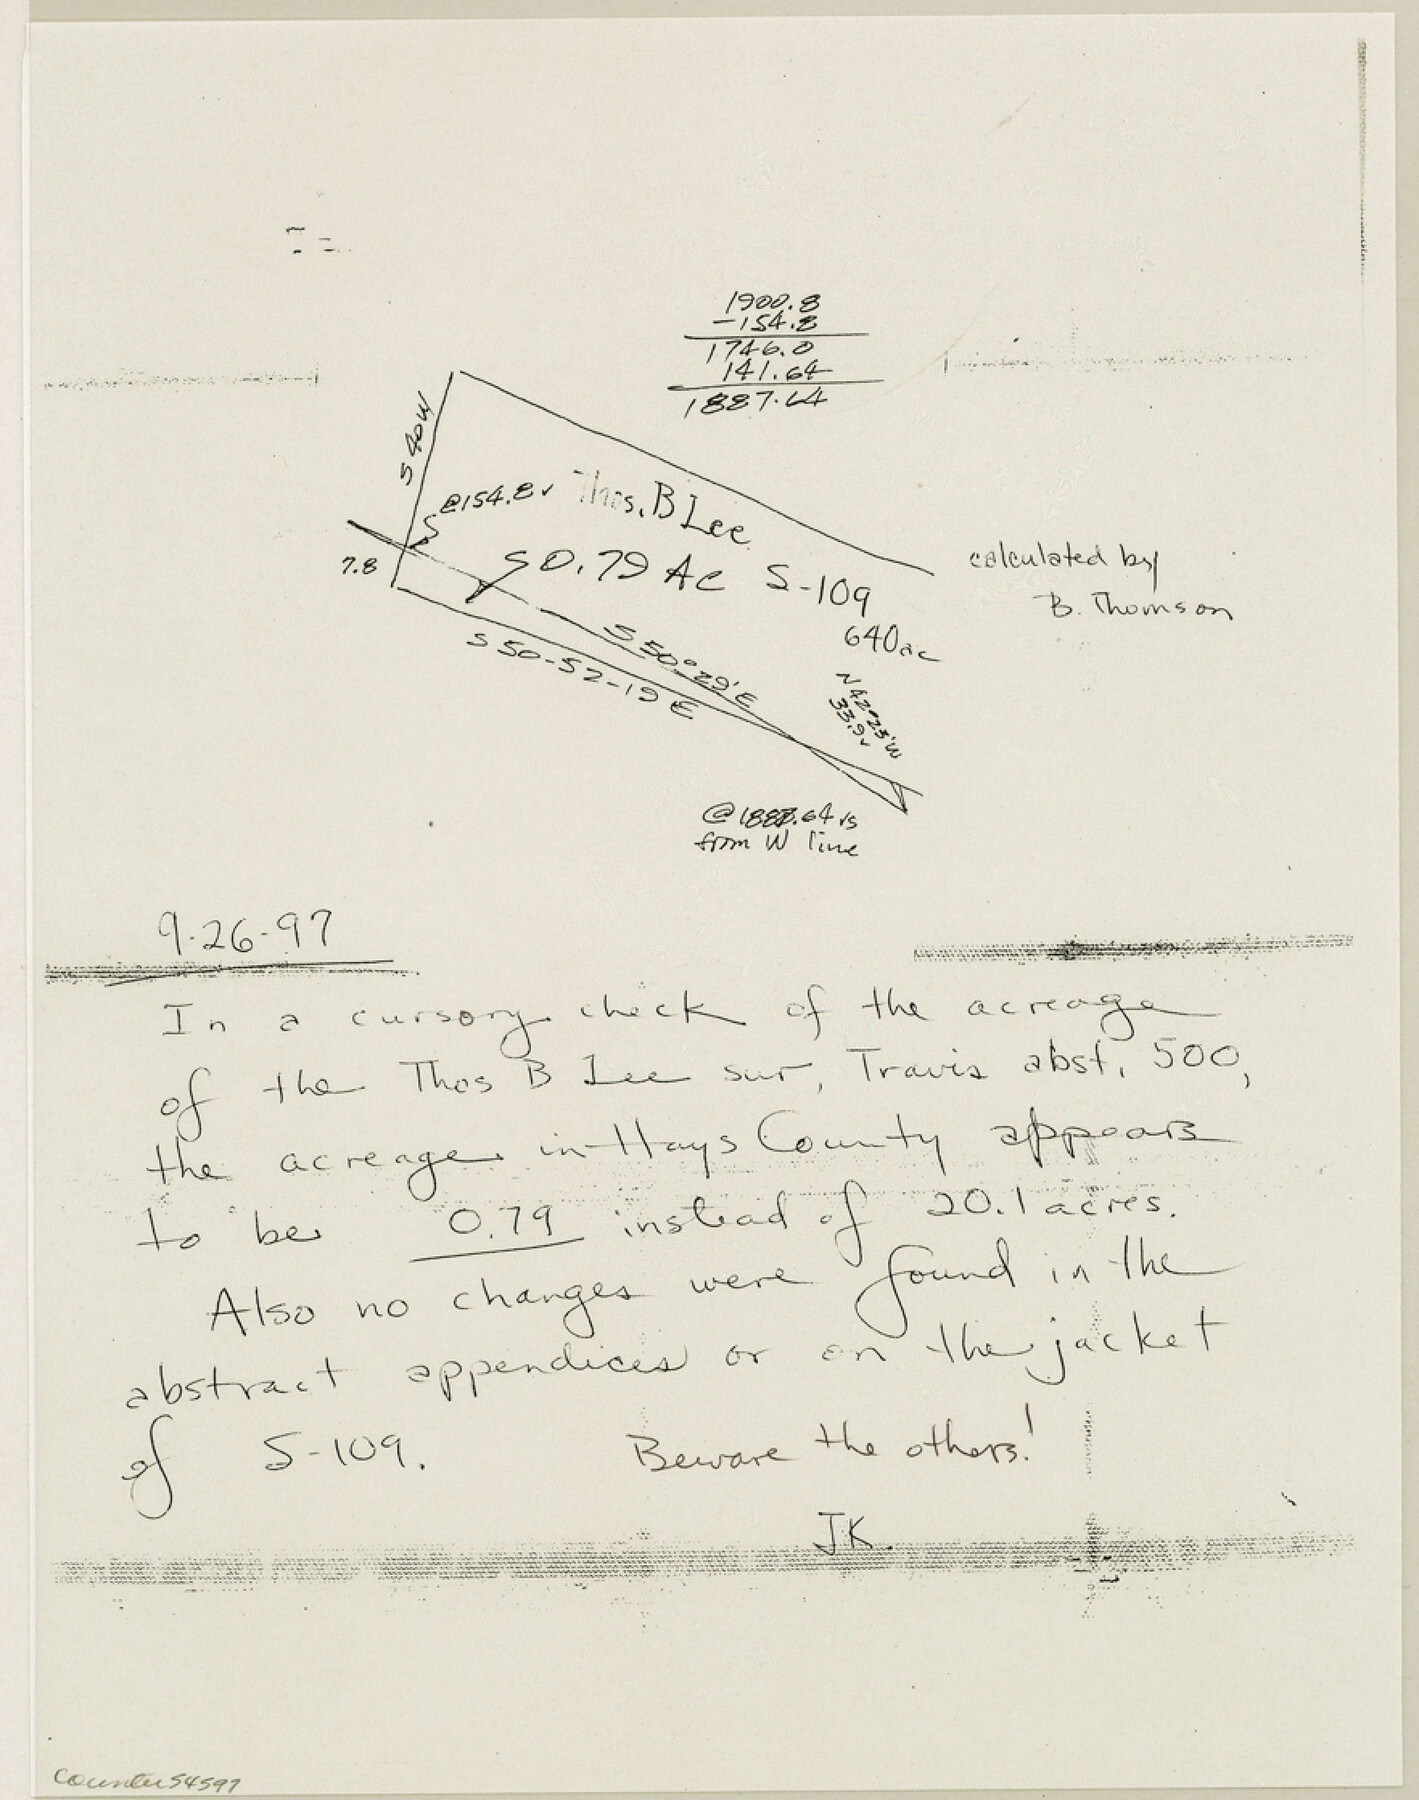 1900.8
-154.8
1746.0
141.64
1887.64
S 40 W
@154.8 v
Thos. B Lee
0.79 Ac S-109
640 ac
7.8
S 50°29' E
S 50-52-19 E
N 42°23' W
33.9 v
@1887.64 vs
from W line
calculated by
B. Thomson
9-26-97
In a cursory check of the acreage
of the Thos B Lee sur, Travis abst. 500,
the acreage in Hays County appears
to be 0.79 instead of 20.1 acres.
Also no changes were found in the
abstract appendices or on the jacket
of S-109. Beware the others!
JK.
Counter 54597